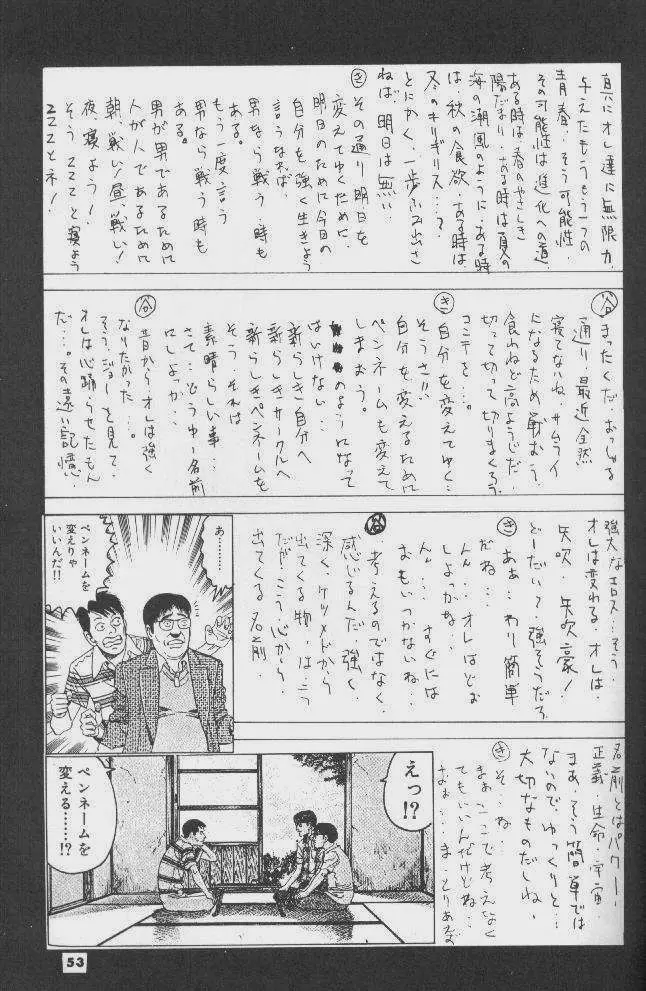 真にオレ達に無限力
与えたもうもう一つの
青春、そう可能性、
その可能性は進化への道、
ある時は春のやさしき
陽だまり、ある時は夏の
海の潮風のように、ある時
は、秋の食欲、ある時は
冬のキリギリス…?
とにかく、一歩ふみ出さ
ねば、明日は無い…
き その通り、明日を
変えてゆくために、
明日のために今日の
自分を強く生きよう
言うなれば、
男なら戦う時も
ある。
もう一度言う
男なら戦う時も
ある。
男が男であるために
人が人であるために
朝、戦い!昼、戦い!
夜、寝よう!
そうZZZと寝よう
ZZZとネ!
まったくだ、おっしゃる
通り、最近全然
寝てないね、サムライ
になるため戦おう、
食わねど高ようじだ、
切って切って切りまくろう、
コミケを…。
き 自分を変えてゆく…
そうさ!!
自分を変えるために
ペンネームも変えて
しまおう。
のようになって
はいけない…
新らしき自分へ
新らしきサークルへ
新らしきペンネームを
そう、それは
素晴らしい事…
さて…どうゆー名前
にしよっか、
昔からオレは強く
なりたかった…
そう、ジョーを見て、
オレは心踊らせたもん
だ…。その遠い記憶
強大なエロス…そう、
オレは変わる、オレは、
矢吹、矢吹豪!
どーだい?強そうだろ
き ああ…わり簡単
だね…
ん…オレはどお
しよっかな…
ん…すぐには
おもいつかないね…
考えるのではなく、
感じるんだ、強く、
深く、ケツメドから
出てくる物…はこう
だが…こう、心から
出てくる名前、
あ………
ペンネームを
変えりゃ
いいんだ!!
名前とはパワー!
正義、生命、宇宙、
まあ、そう簡単では
ないので、ゆっくりと…
大切なものだしね、
き そ…ね、
まぁ、ここで考えなく
てもいいんだけどね…
おぉ…ま、とりあえず
えっ!?
ペンネームを
変える……!?
53